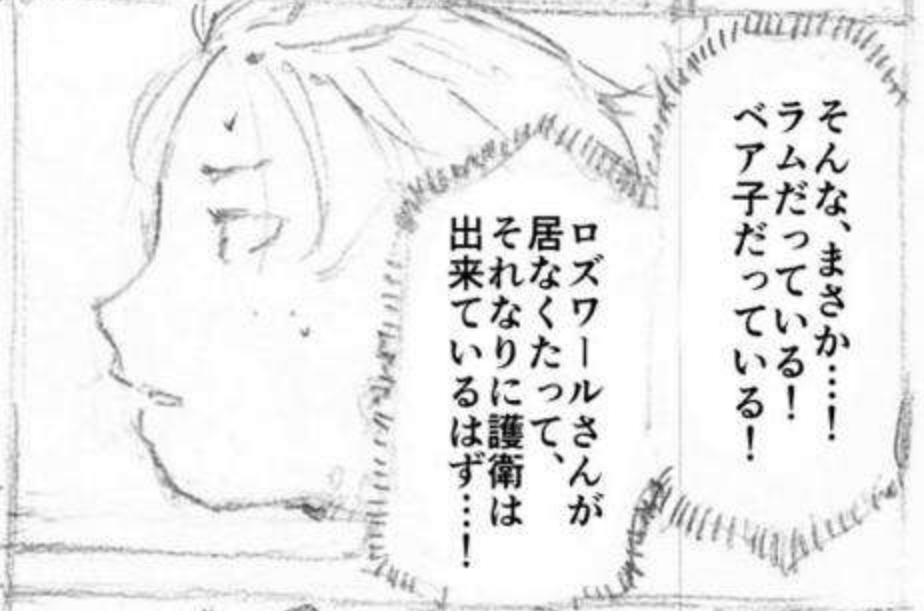 そんな、まさか…！
ラムだっている！
ベア子だっている！
ロズワールさんが
居なくたって、
それなりに護衛は
出来ているはず…！